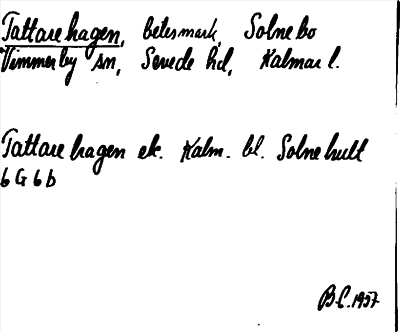 Tattarehagen, betesmark, Solnebo
Vimmerby sn, Sevede hd, Kalmar l.
Tattarehagen ek. Kalm. bl. Solnehult
6 G 6 b
B.L. 1957